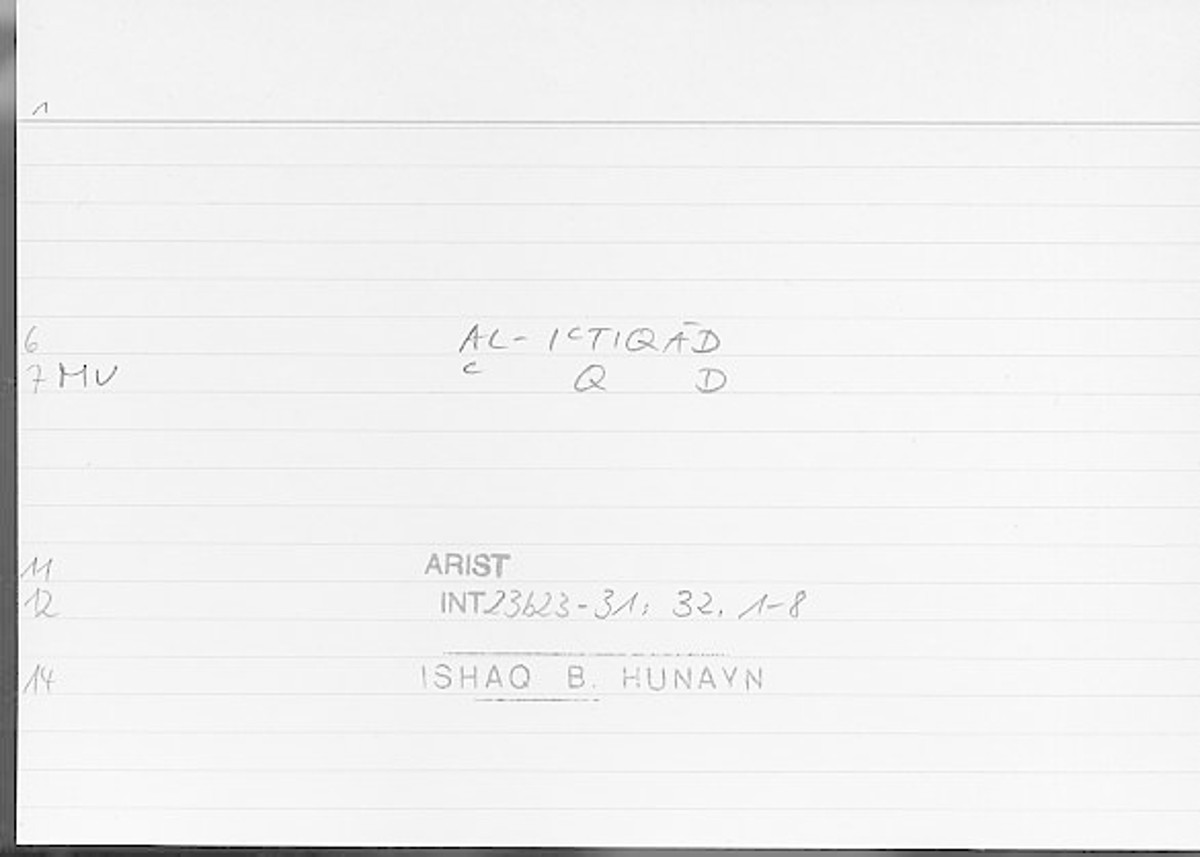 1
6 AL-IᶜTIQĀD
7 MV ᶜ Q D
11 ARIST
12 INT 23b23-31; 32, 1-8
14 ISHAQ B. HUNAYN